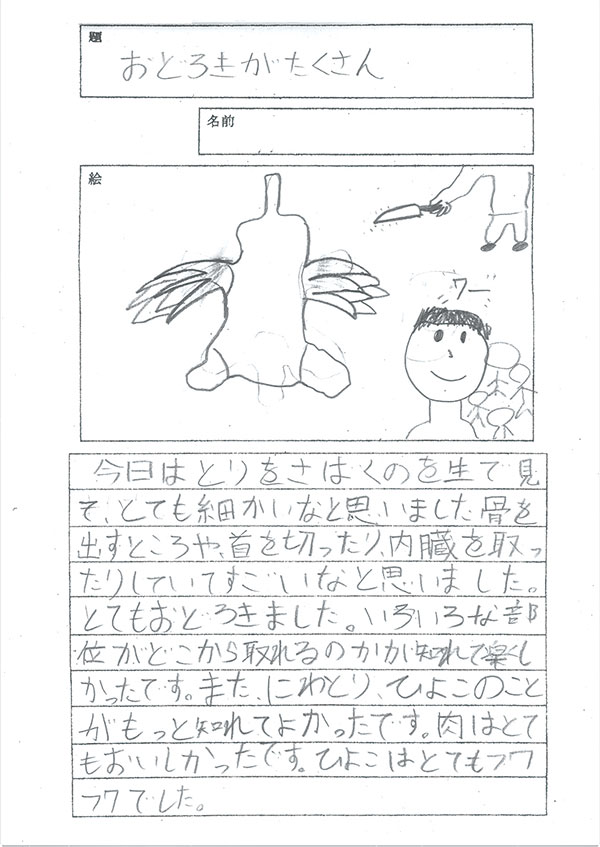 題
おどろきがたくさん
名前
絵
ワー
今日はとりをさばくのを生で見
て、とても細かいなと思いました骨を
出すところや、首を切ったり、内臓を取っ
たりしていてすごいなと思いました。
とてもおどろきました。いろいろな部
位がどこから取れるのかが知れて楽し
かったです。また、にわとり、ひよこのこと
がもっと知れてよかったです。肉はとて
もおいしかったです。ひよこはとてもフワ
フワでした。